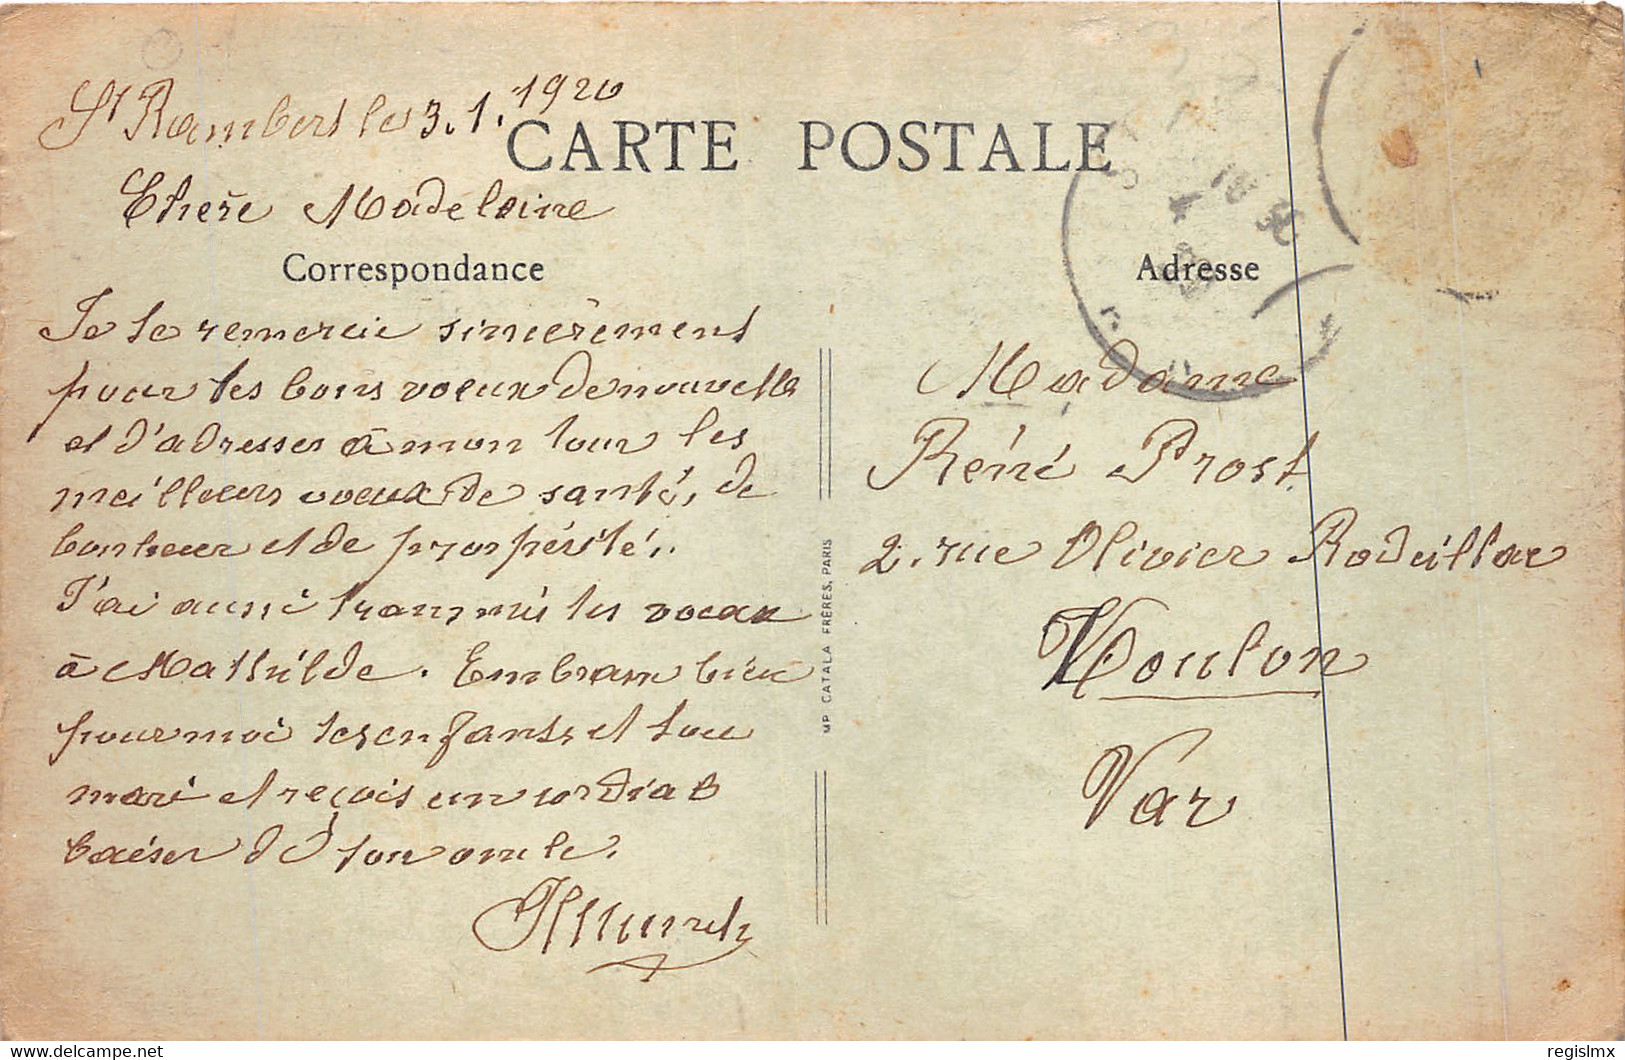 St Rambert le 3.1.1920
CARTE POSTALE
Chère Madeleine
Correspondance
Je te remercie sincèrement
pour tes bons voeux de nouvelle
et d'adresser à mon tour les
meilleurs voeux de santé, de
bonheur et de prospérité.
J'ai aussi transmis tes voeux
à Mathilde. Embrasse bien
pour moi tes enfants et ton
mari et reçois un cordial
baiser de ton oncle.
MP. CATALA FRÈRES, PARIS
Adresse
Madame
Réné Prost
2. rue Olivier
Toulon
Var
delcampe.net
regislmx